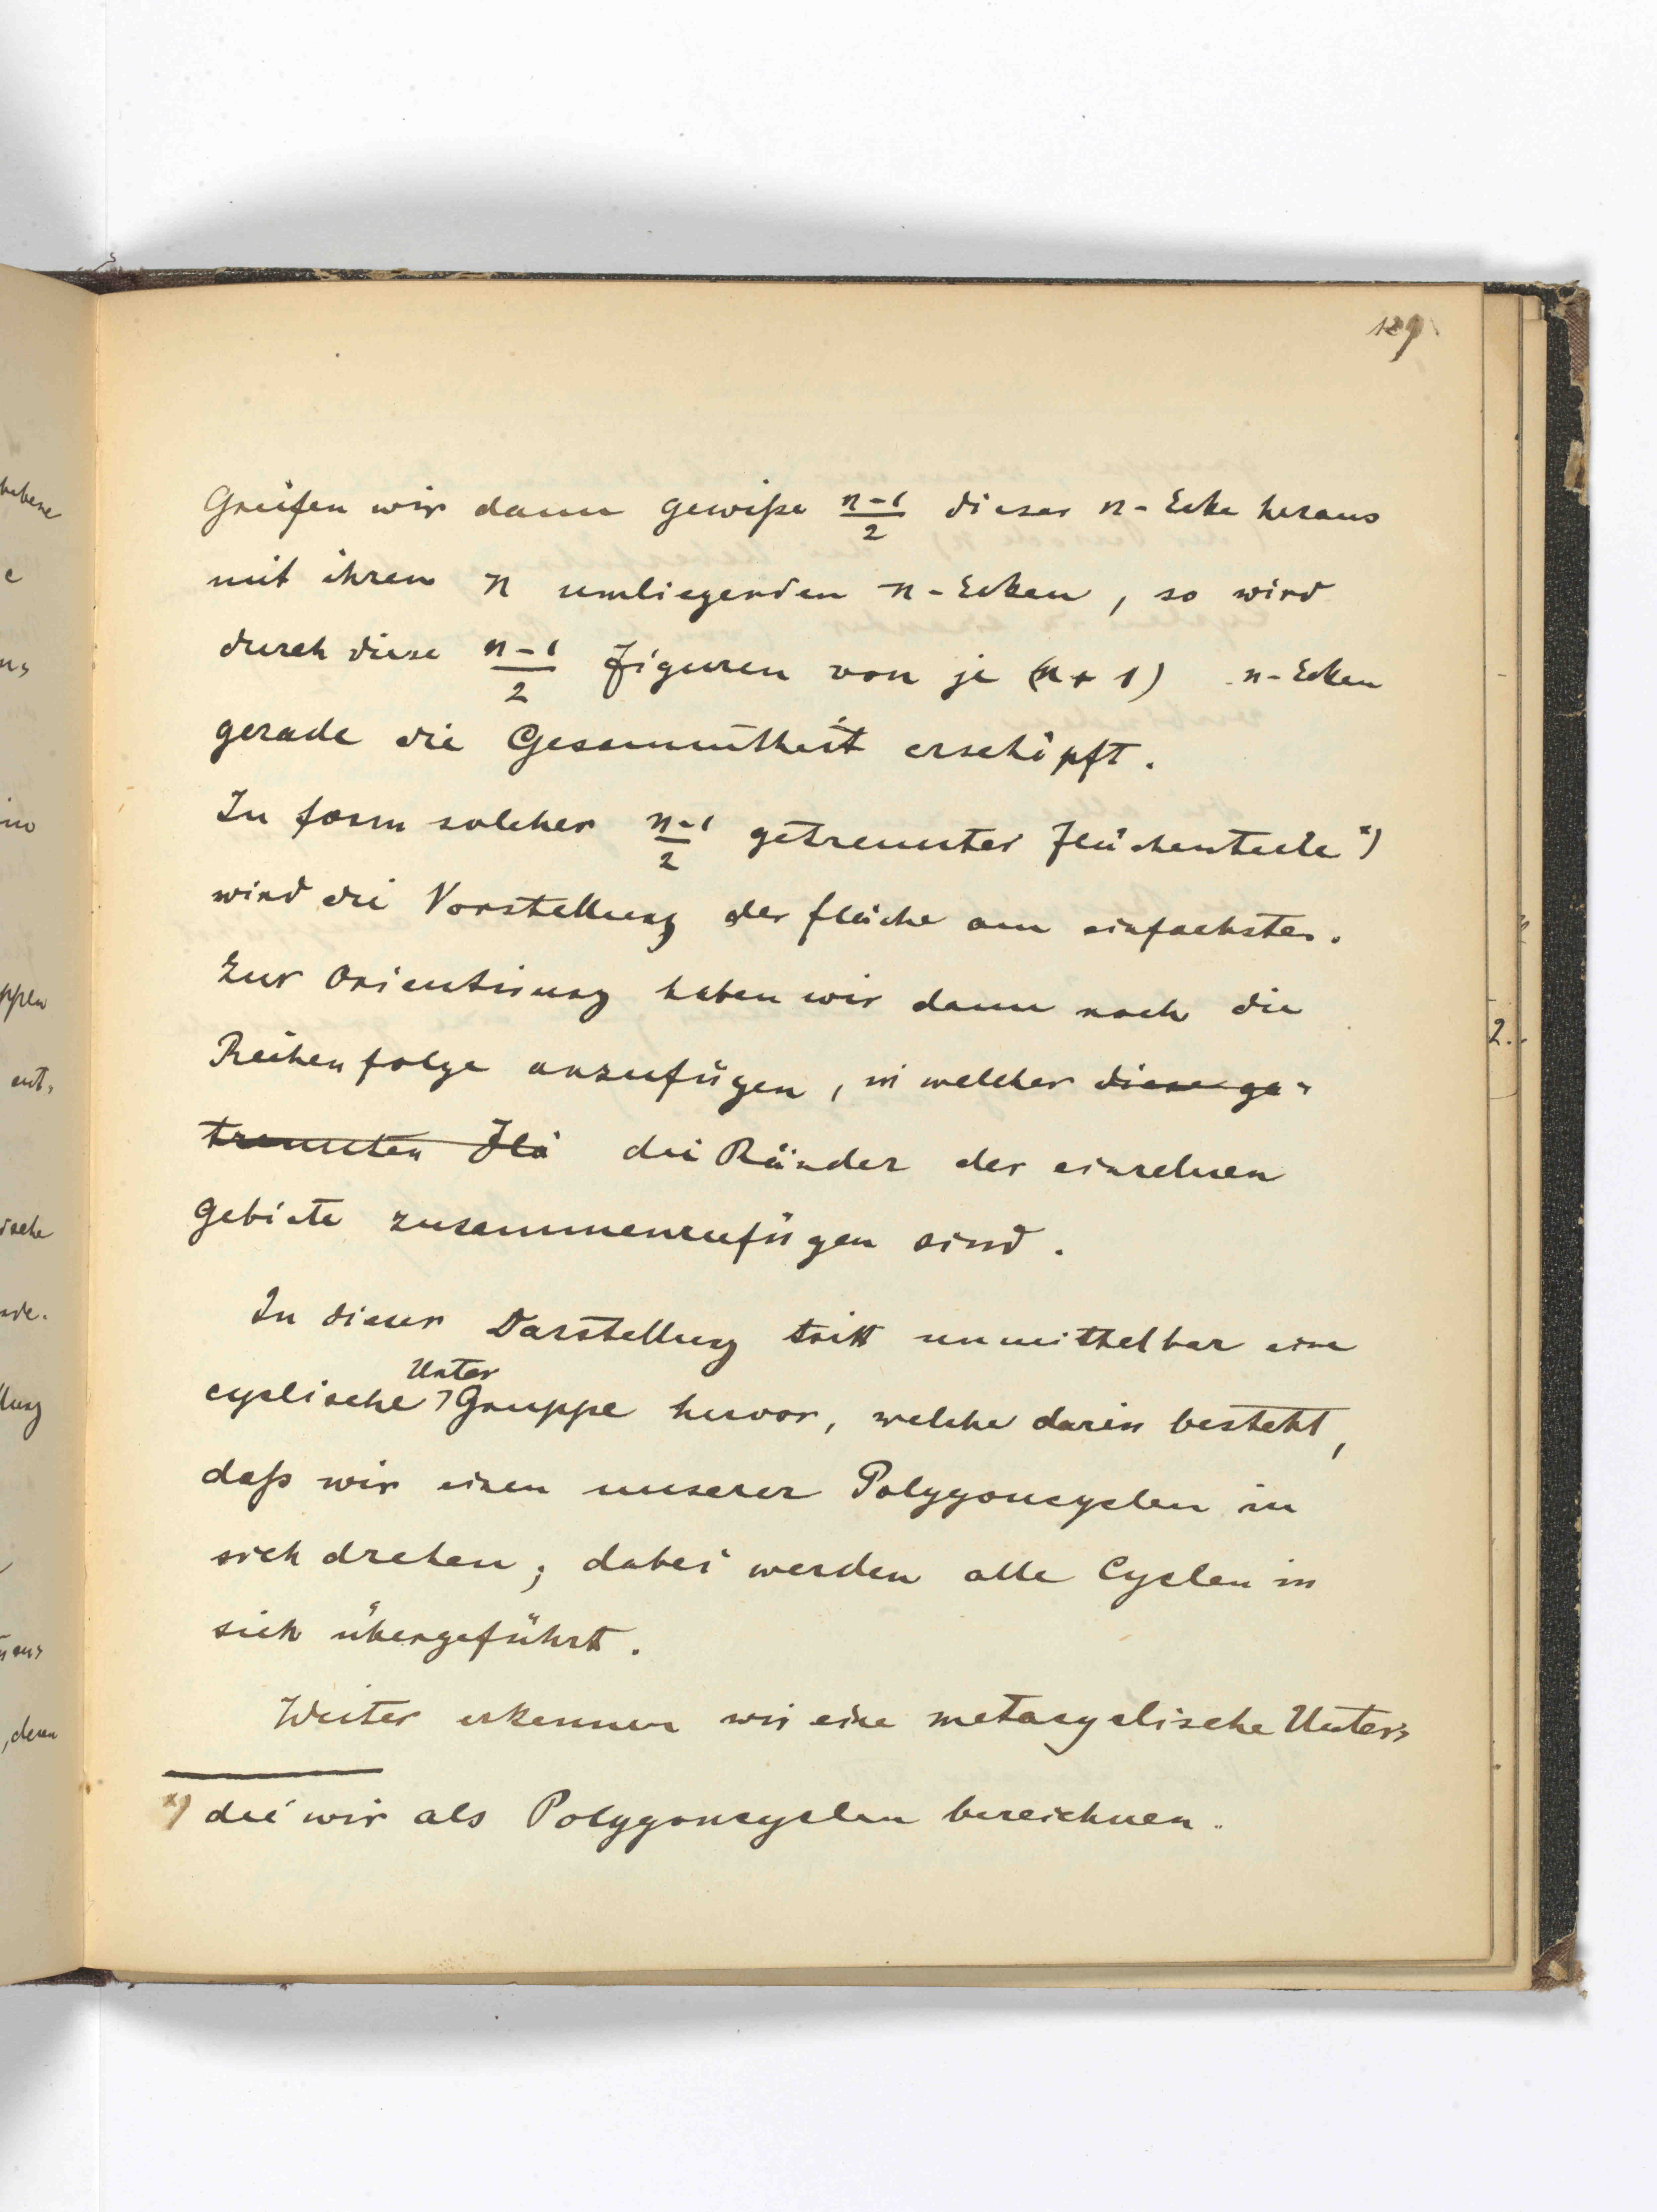 129
Greifen wir dann gewiße n-1/2 dieser n-Ecke heraus
mit ihren n umliegenden n-Ecken, so wird
durch diese n-1/2 Figuren von je (n+1) n-Ecken
gerade die Gesammtheit erschöpft.
In form solcher n-1/2 getrennter Flächenteile *)
wird die Vorstellung der fläche am einfachsten.
Zur Orientirung haben wir dann noch die
Reihenfolge anzufügen, in welcher diese ge-
trennten Flä die Ränder der einzelnen
Gebiete zusammenzufügen sind.
In dieser Darstellung tritt unmittelbar eine
Unter
cyclische Gruppe hervor, welche darin besteht,
daß wir einen unserer Polygoncyclen in
sich drehen; dabei werden alle Cyclen in
sich übergeführt.
Weiter erkennen wir eine metacyclische Unter-
*) die wir als Polygoncyclen bezeichnen.
2.